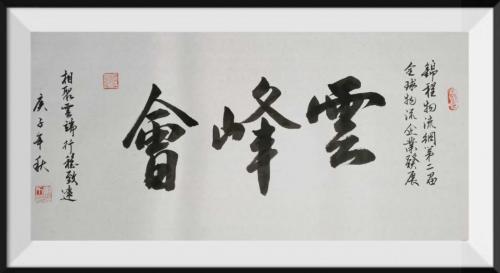 錦程物流網第二届
全球物流企業發展
雲峰會
相聚雲端行穩致遠
庚子年秋